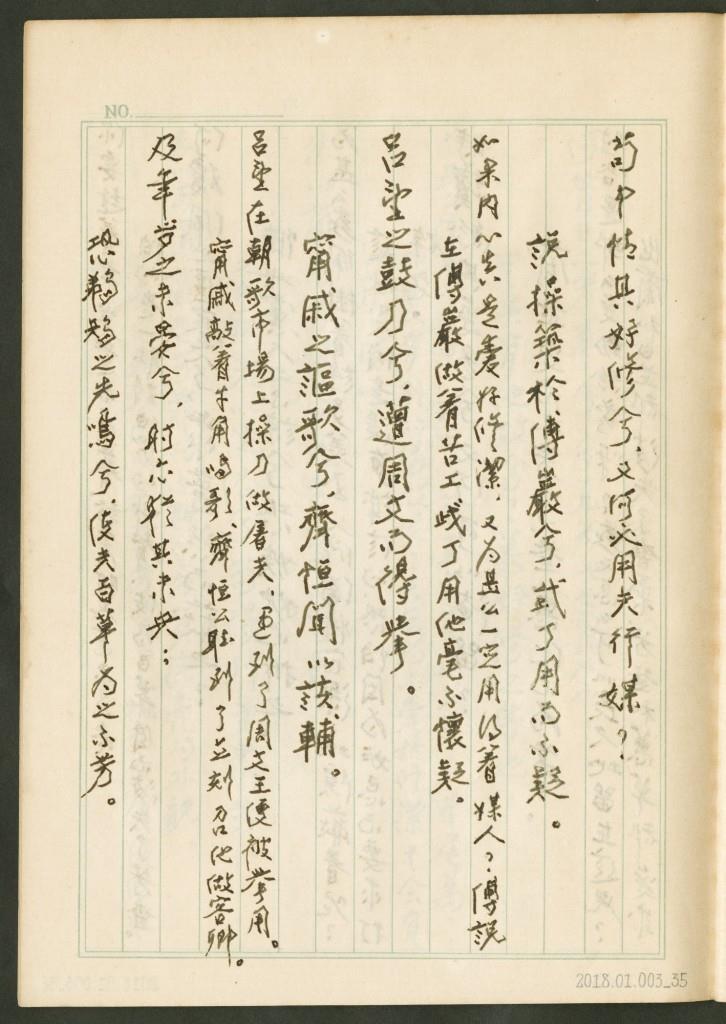 NO.
苟中情其好修兮，又何必用夫行媒？
說操築於傅巖兮，武丁用而不疑。
如果內心真是愛好修潔，又為甚么一定用得着媒人？傅說
在傅巖做着苦工武丁用他毫不懷疑。
呂望之鼓刀兮，遭周文而得舉。
甯戚之謳歌兮，齊恒聞以該輔。
呂望在朝歌市場上操刀做屠夫，遇到了周文王便被举用。
甯戚敲着牛角唱歌，齊恒公聽到了立刻召他做客卿。
及年岁之未晏兮，时亦猶其未央；
恐鵜鴂之先鳴兮，使夫百草为之不芳。
2018.01.003_35